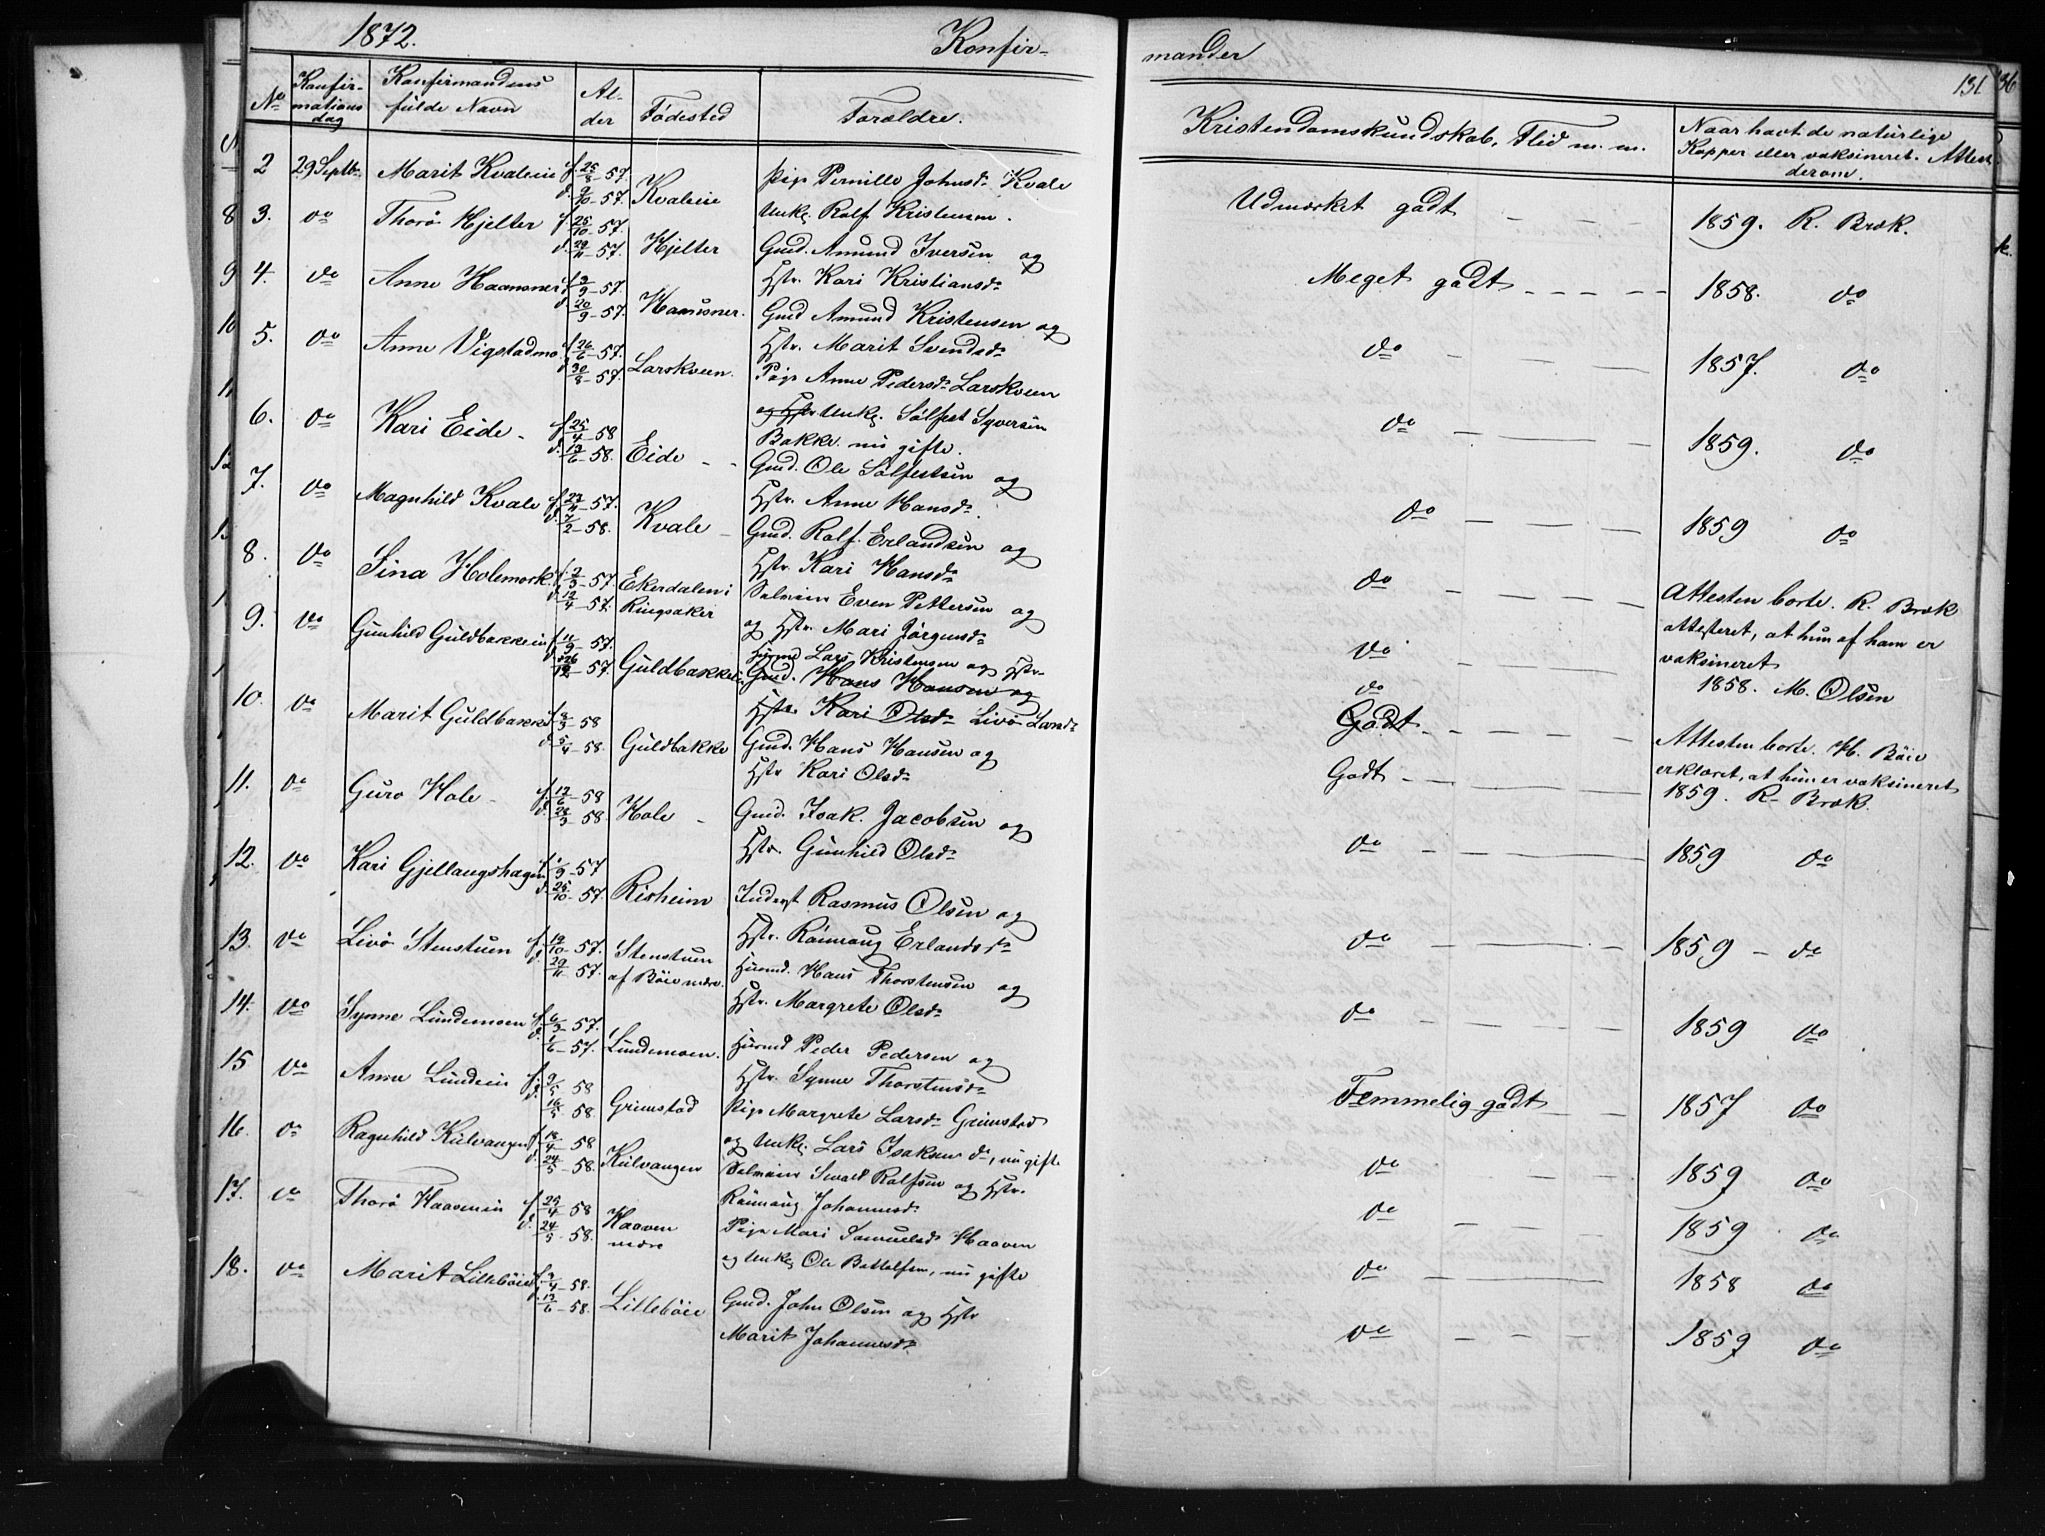 1872.
Konfir-
mander
131
No
Konfir-
mations
dag
Konfirmandens
fulde Navn
Al-
der
Fødested
Forældre.
Kristendomskundskab, Flid m. m.
Naar havt de naturlige
Kopper eller vaksineret. Attest
derom.
2 29 Septbr. Marit Kvaleie f. 25/8-57. d. 9/10-57. Kvaleie
Pige Pernille Johnsdr Kvale
Unkg. Rolf Kristensen.
Udmærket godt
1859. R. Bræk.
3. do Thorø Hjelter f. 25/10-57. d. 29/11-57. Hjelter
Gmd. Amund Iversen og
Hstr. Kari Kristiansdr
Meget godt
1858. do
4. do Anne Haansner f. 3/9-57. d. 20/9-57. Haansner.
Gmd Amund Kristensen og
Hstr. Marit Svendsdr
do
1857. do
5. do Anne Vigstadmo f. 26/6-57. d. 30/8-57. Larskveen.
Pige Anne Pedersdr Larskveen
og Hstr Unkg. Sølfest Syversen
Bakke nu gifte.
do
1859. do
6. do Kari Eide f. 25/4-58 d. 12/6-58. Eide
Gmd. Ole Sølfestsen og
Hstr. Anne Hansdr.
do
1859 do
7. do Magnhild Kvale f. 27/11-57. d. 7/2-58. Kvale
Gmd. Rolf Erlandsen og
Hstr Kari Hansdr
do
Attesten borte. R. Bræk
attesteret, at hun af ham er
vaksineret
8. do Sina Holemork f. 2/3-57. d. 12/4-57. Ekerdalen i
Ringsaker
Selveier Even Pettersen og
og Hstr. Mari Jørgensdr
do
1858. M. Olsen
9. do Gunhild Guldbakkeie f. 11/9-57. d. 26/12-57. Guldbakkeie
Husmd Lars Kristensen og Hstr.
Gmd. Hans Hansen og
Hstr. Kari Olsdr Livø Larsdr
do
Godt
Attesten borte. H. Böie
erklæret, at hun er vaksineret
10. do Marit Guldbakke f. 2/3-58 d. 5/4-58. Guldbakke
Gmd. Hans Hansen og
Hstr Kari Olsdr
Godt
1859. R. Bræk.
11. do Guro Hole f. 12/6-58 d. 28/3-58 Hole
Gmd. Isak Jacobsen og
Hstr. Gunhild Olsdr
do
1859 do
12. do Kari Gjellaugshagen f. 1/9-57 d. 25/10-57. Risheim
Inderst Rasmus Olsen og
Hstr. Rønnaug Erlandsdr
do
1859 - do
13. do Livø Stenstuen f. 12/10-57. d. 29/11-57. Stenstuen
af Böie nedre.
Husmd. Hans Thorstensen og
Hstr. Margrete Olsdr
do
1859 do
14. do Synne Lundemoen f. 6/3-57. d. 1/6-57. Lundemoen.
Husmd Peder Pedersen og
Hstr. Synne Thorstensdr
Temmelig godt
1857 do
15 do Anne Lundeie f. 9/5 58 d. 16/5 58. Grimstad
Pige Margrete Larsdr Grimstad
og Unkg. Lars Isaksen do, nu gifte
do
1859 do
16. do Ragnhild Kulvangen f. 18/4 58 d. 24/5-58. Kulvangen
Selveier Sivald Rolfsen og Hstr.
Rønnaug Johannesdr
do
1859 do
17. do Thorø Haaveneie f. 25/4 58 d. 24/5-58. Haaven
nedre
Pige Mari Samuelsdr Haaven
og Unkg Ole Bottolfsen, nu gifte
do
1858 do
18. do Marit Lillebøie f. 3/4-58. d. 12/6-58. Lillebøie
Gmd. John Olsen og Hstr
Marit Johannesdr
do
1859 do